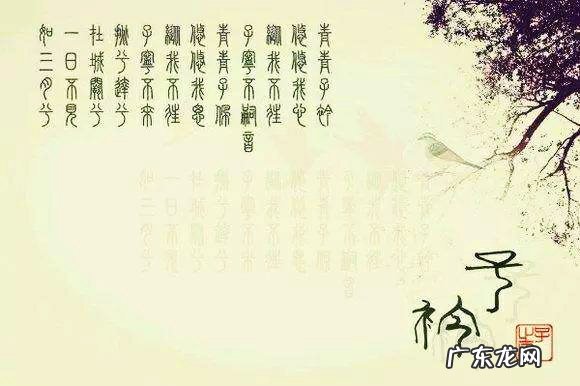 青青子衿
悠悠我心
縱我不往
子寧不嗣音
青青子佩
悠悠我思
縱我不往
子寧不來
挑兮達兮
在城闕兮
一日不見
如三月兮
子衿
广东龙网